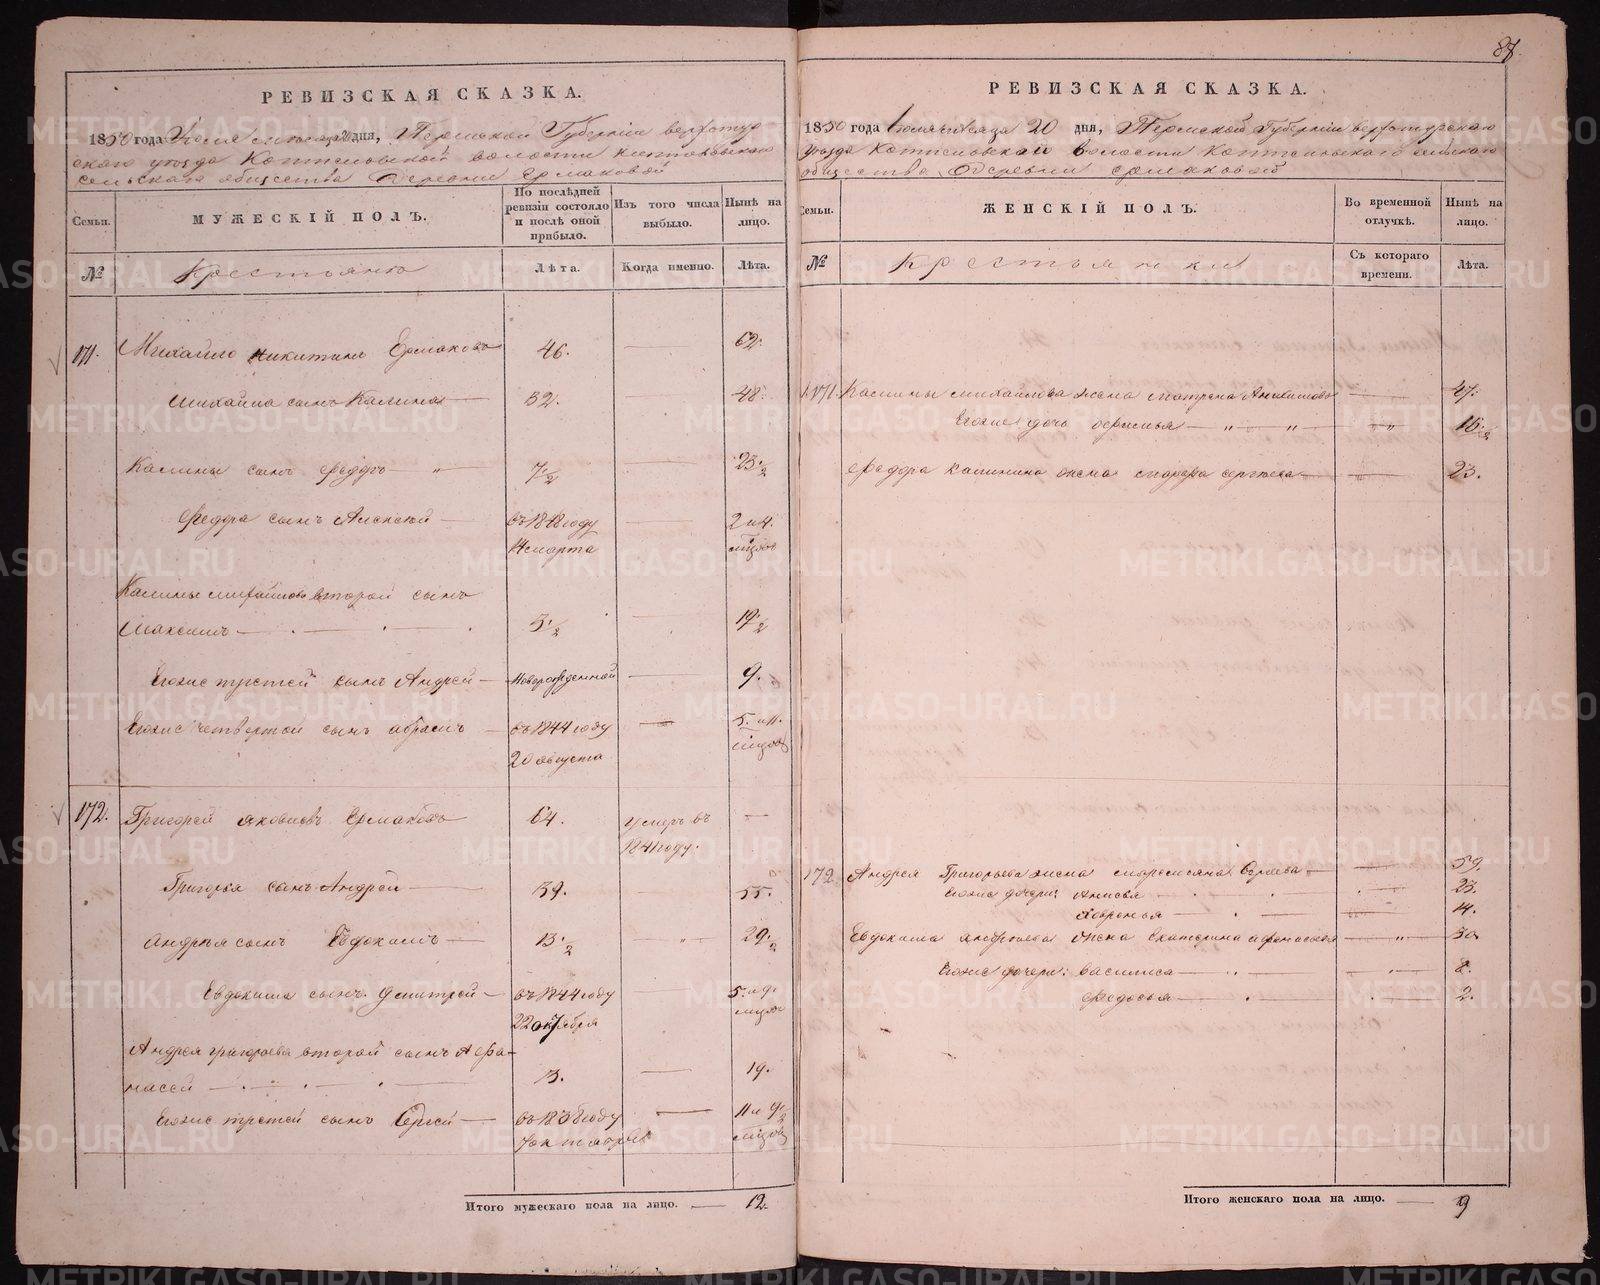 РЕВИЗСКАЯ СКАЗКА.
1850 года Июля месяца 20 дня, Пермской Губернии верхотур
скаго уезда Коптеловской волости Коптеловскаго
сельскаго общества Деревни Ермаковой
Семьи.
МУЖЕСКІЙ ПОЛЪ.
По послѣдней ревизіи состояло и послѣ оной прибыло.
Изъ того числа выбыло.
Нынѣ на лицо.
№
Крестьяне
Лѣта.
Когда именно.
Лѣта.
171. Михайло Никитинъ Ермаковъ 46. — 62.
Михайла сынъ Калина — 32. — 48.
Калины сынъ Федоръ — " 7½ — 23½
Федора сынъ Алексей — въ 1848 году — 2 и 4.
14 марта месяцов
Калины Михайлова второй сынъ
Максимъ — . — . — . 3½ — 19½
Егоже третей сынъ Андрей — Новорожденной — 9.
Егоже четвертой сынъ Абрамъ — въ 1844 году — 5. и 11.
20 августа месяцов
172. Григорей Яковлевъ Ермаковъ 64. умеръ въ —
1841 году.
Григорья сынъ Андрей — 39. 55.
Андрея сынъ Евдокимъ — 13½ — " 29½
Евдокима сынъ Дмитрей — въ 1844 году 5. и 9.
22 октября месяцов
Андрея Григорьева второй сынъ Афо-
насей — . — . — . — 3. — 19.
Егоже третей сынъ Сергей — въ 1838 году — 11 и 9½
7 октября месяцов
Итого мужескаго пола на лицо. — 12.
87.
РЕВИЗСКАЯ СКАЗКА.
1850 года Июля месяца 20 дня, Пермской Губернии верхотурскаго
уезда Коптеловской волости Коптеловскаго сельскаго
общества Деревни Ермаковой
Семьи.
ЖЕНСКІЙ ПОЛЪ.
Во временной отлучкѣ.
Нынѣ на лицо.
№
Крестьянки
Съ котораго времени.
Лѣта.
171. Калины Михайлова жена Матрена — 47.
Егоже дочь — " — " — " 16½
Федора Калинина жена Сергеева — 23.
172 Андрея Григорьева жена — 59.
Егоже дочери: Анисья — 23.
Ховронья — . — 14.
Евдокима Андреева жена Екатерина Афонасьева — " — 30
Егоже дочери: Василиса — " — 8.
Федосья — . — 2.
Итого женскаго пола на лицо. — 9
METRIKI.GASO-URAL.RU